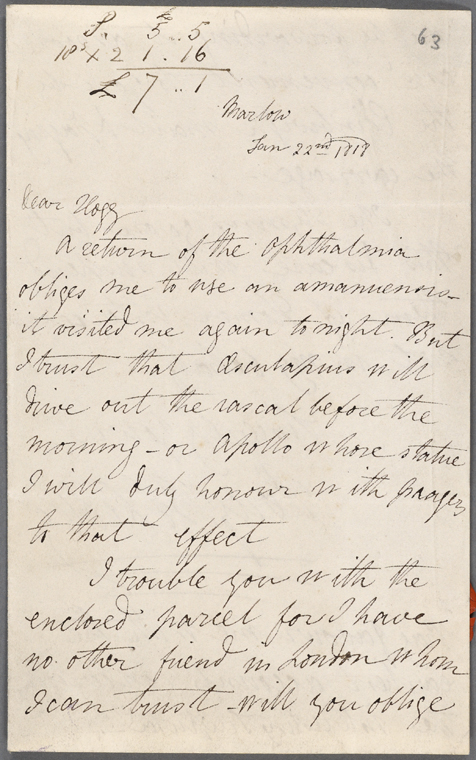 63
£ 5 .. 5
18s × 2 1 .. 16
£ 7 .. 1
Marlow
Jan 22nd 1818
Dear Hogg
A return of the ophthalmia
obliges me to use an amanuensis—
it visited me again tonight. But
I trust that Æsculapius will
drive out the rascal before the
morning – or Apollo whose statue
I will duly honour with prayers
to that effect
I trouble you with the
enclosed parcel for I have
no other friend in London whom
I can trust – will you oblige